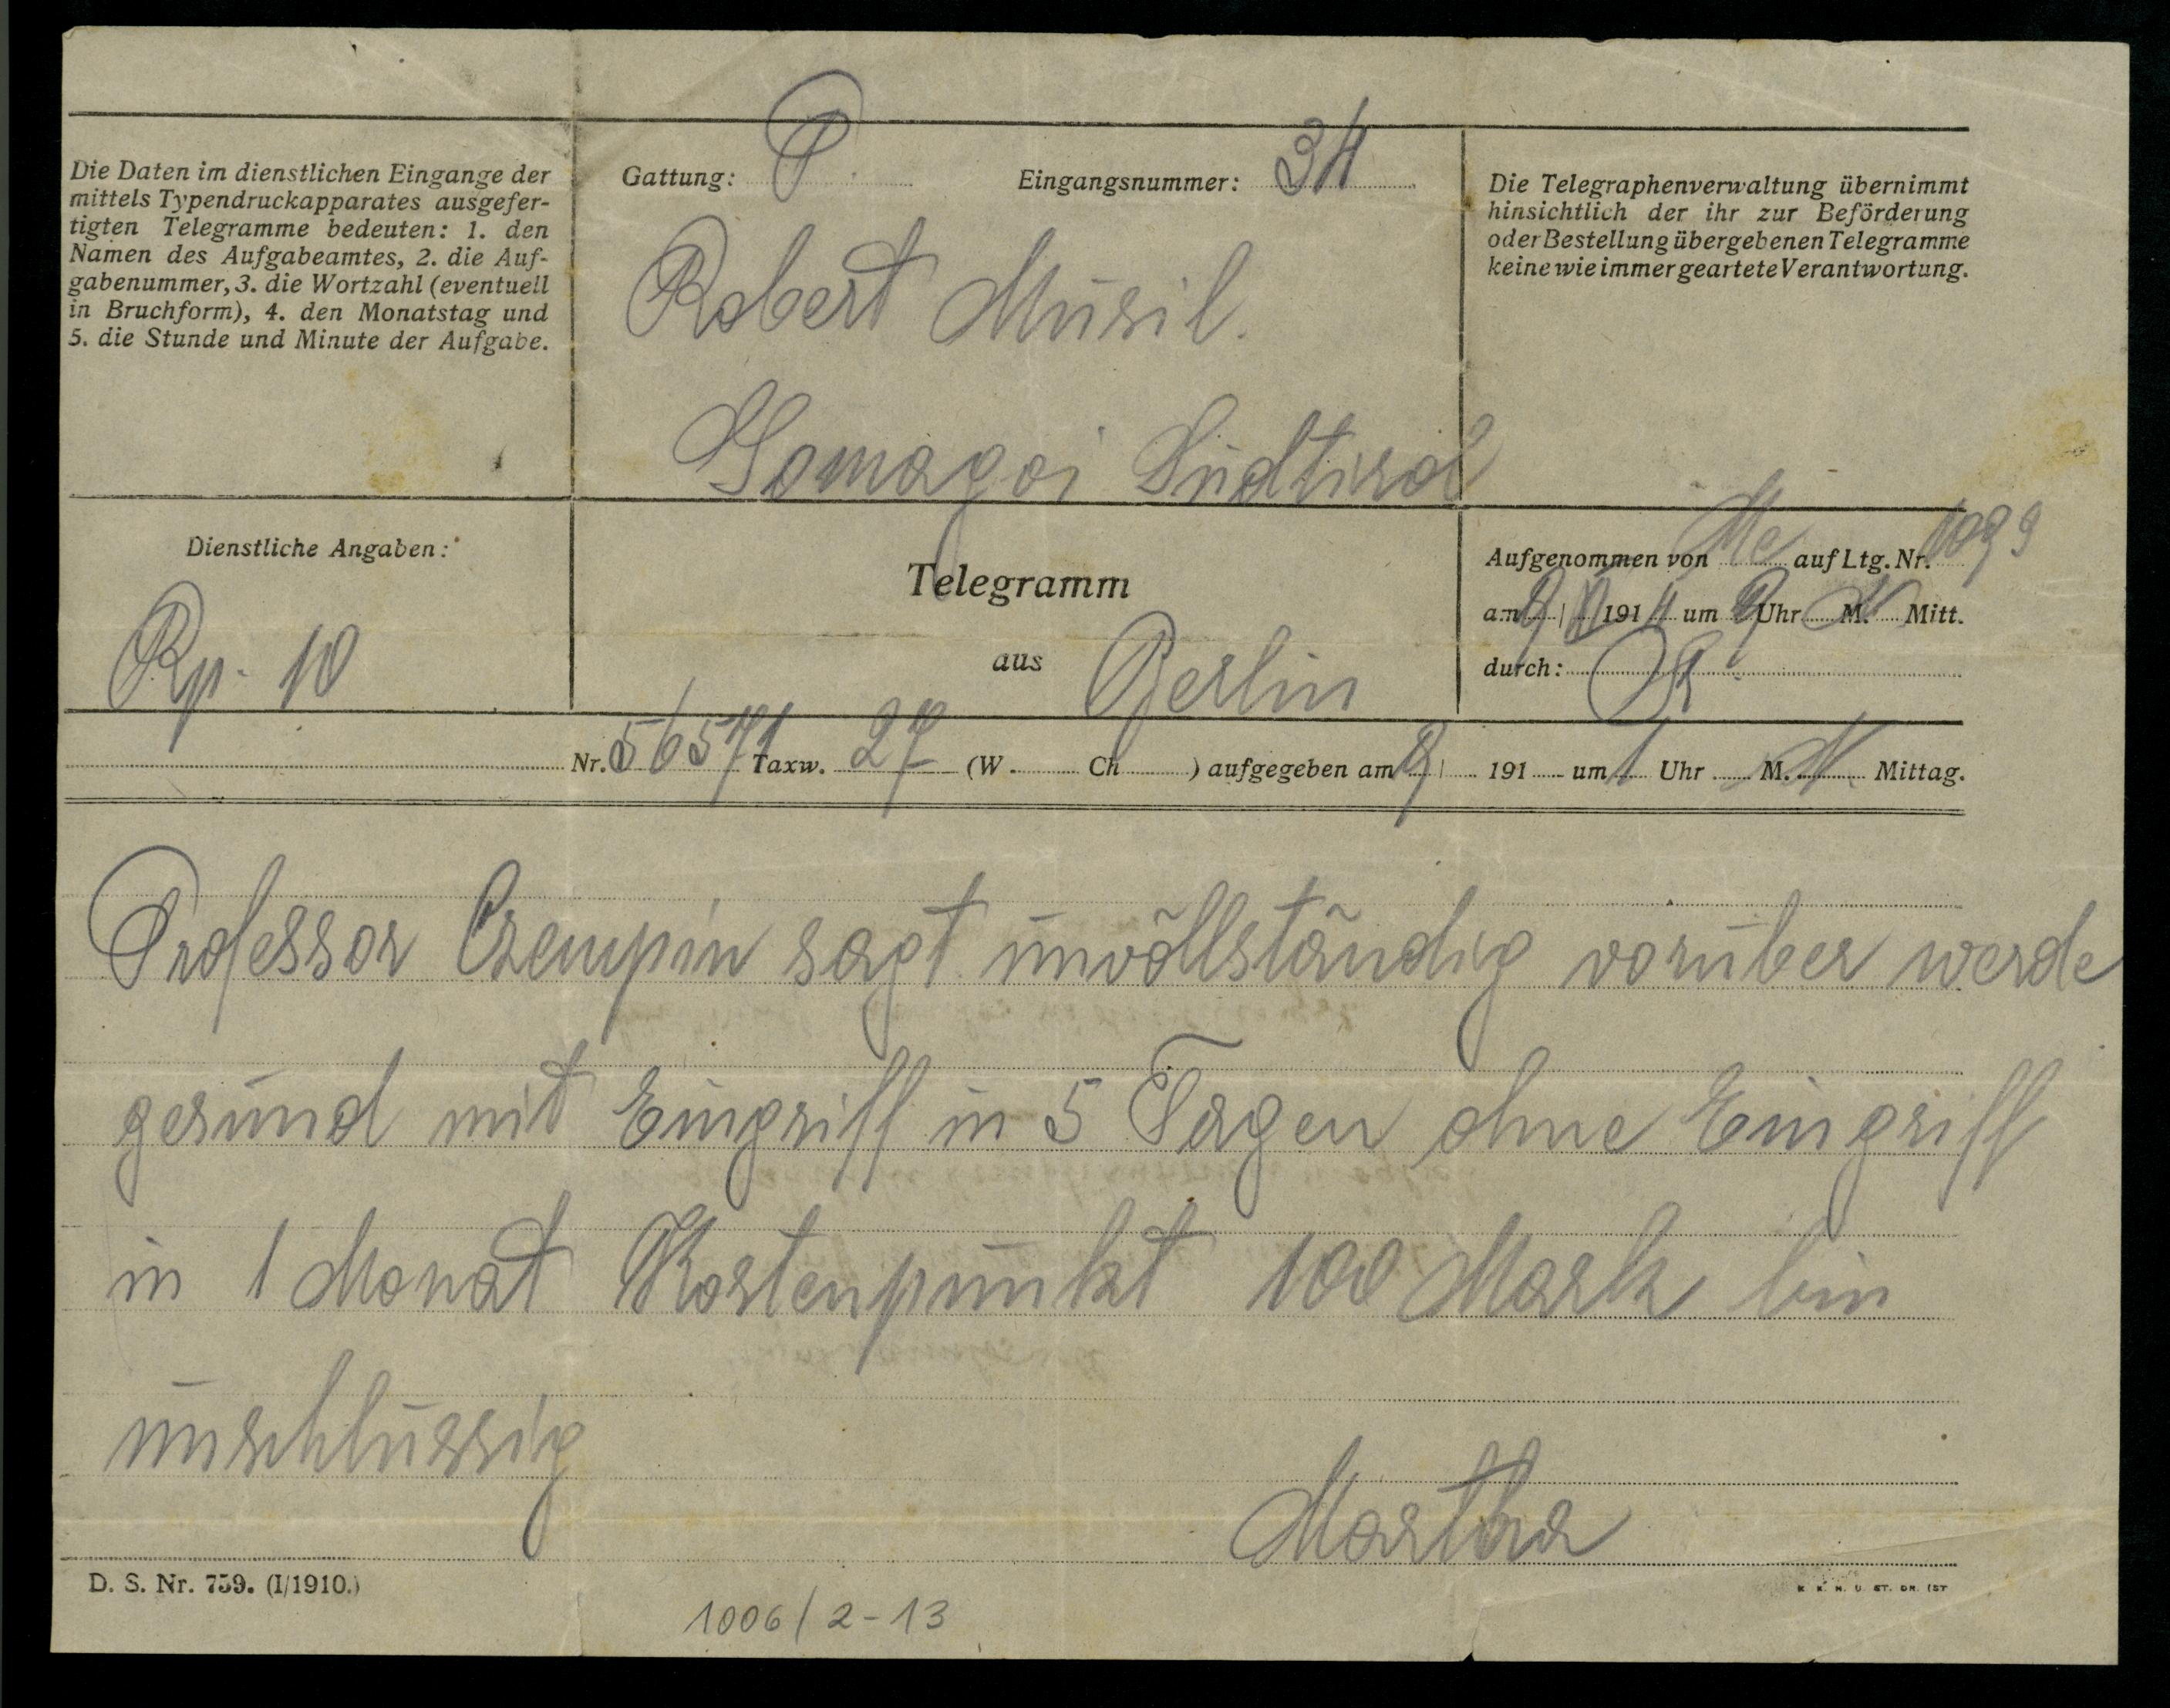 Die Daten im dienstlichen Eingange der
mittels Typendruckapparates ausgefer-
tigten Telegramme bedeuten: 1. den
Namen des Aufgabeamtes, 2. die Auf-
gabenummer, 3. die Wortzahl (eventuell
in Bruchform), 4. den Monatstag und
5. die Stunde und Minute der Aufgabe.
Gattung: P Eingangsnummer: 34
Robert Musil.
Gomagoi Südtirol
Die Telegraphenverwaltung übernimmt
hinsichtlich der ihr zur Beförderung
oder Bestellung übergebenen Telegramme
keine wie immer geartete Verantwortung.
Dienstliche Angaben:
Rp. 10
Telegramm
aus Berlin
Aufgenommen von Me auf Ltg. Nr. 1099
am 9 | 191 um 9 Uhr M. Mitt.
durch:
Nr. 56571 Taxw. 27 (W. Ch ) aufgegeben am 9 | 191 um 1 Uhr M. N. Mittag.
Professor Czempin sagt unvollständig vorüber werde
gesund mit Eingriff in 5 Tagen ohne Eingriff
in 1 Monat Kostenpunkt 100 Mark bin
unschlüssig
Martha
D. S. Nr. 759. (I/1910.)
1006/2-13